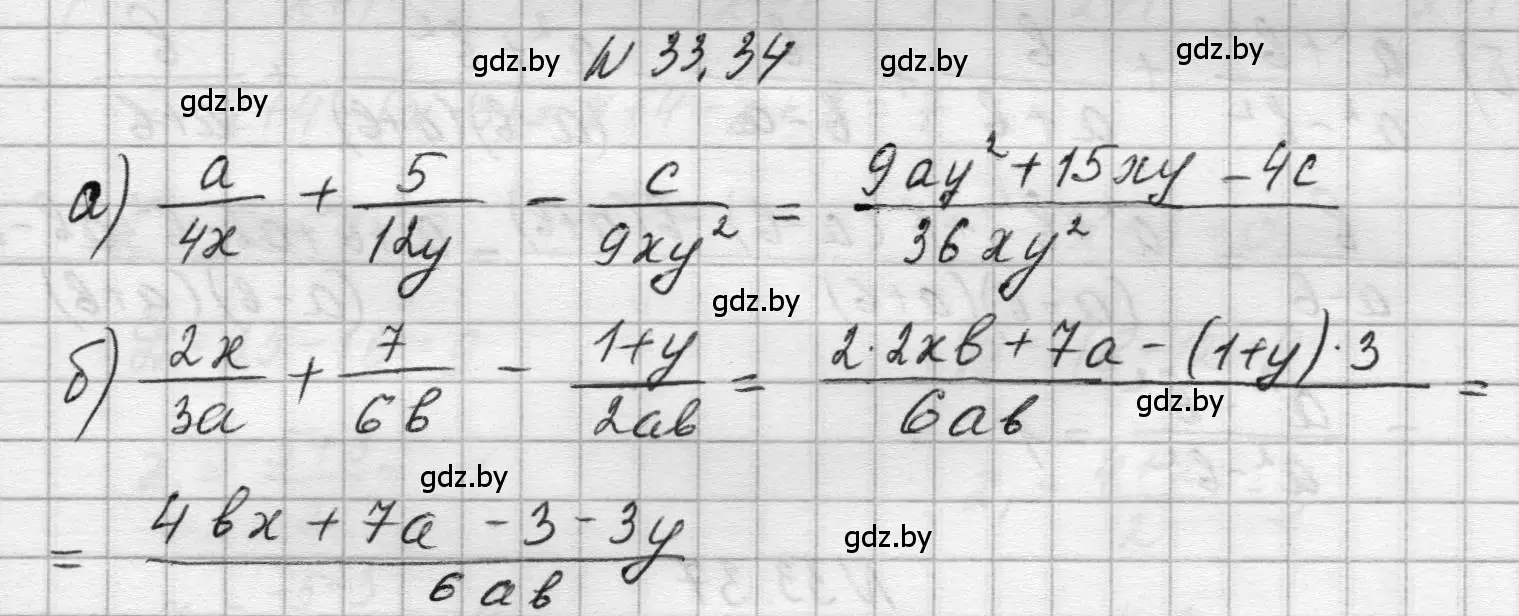 gdz.by N 33.34 gdz.by gdz.by
gdz.by
а) a/4x + 5/12y - c/9xy² = 9ay² + 15xy - 4c/36xy²
gdz.by
б) 2x/3a + 7/6b - 1+y/2ab = 2·2xb + 7a - (1+y)·3/6ab =
gdz.by
gdz.by
= 4bx + 7a - 3 - 3y/6ab
gdz.by